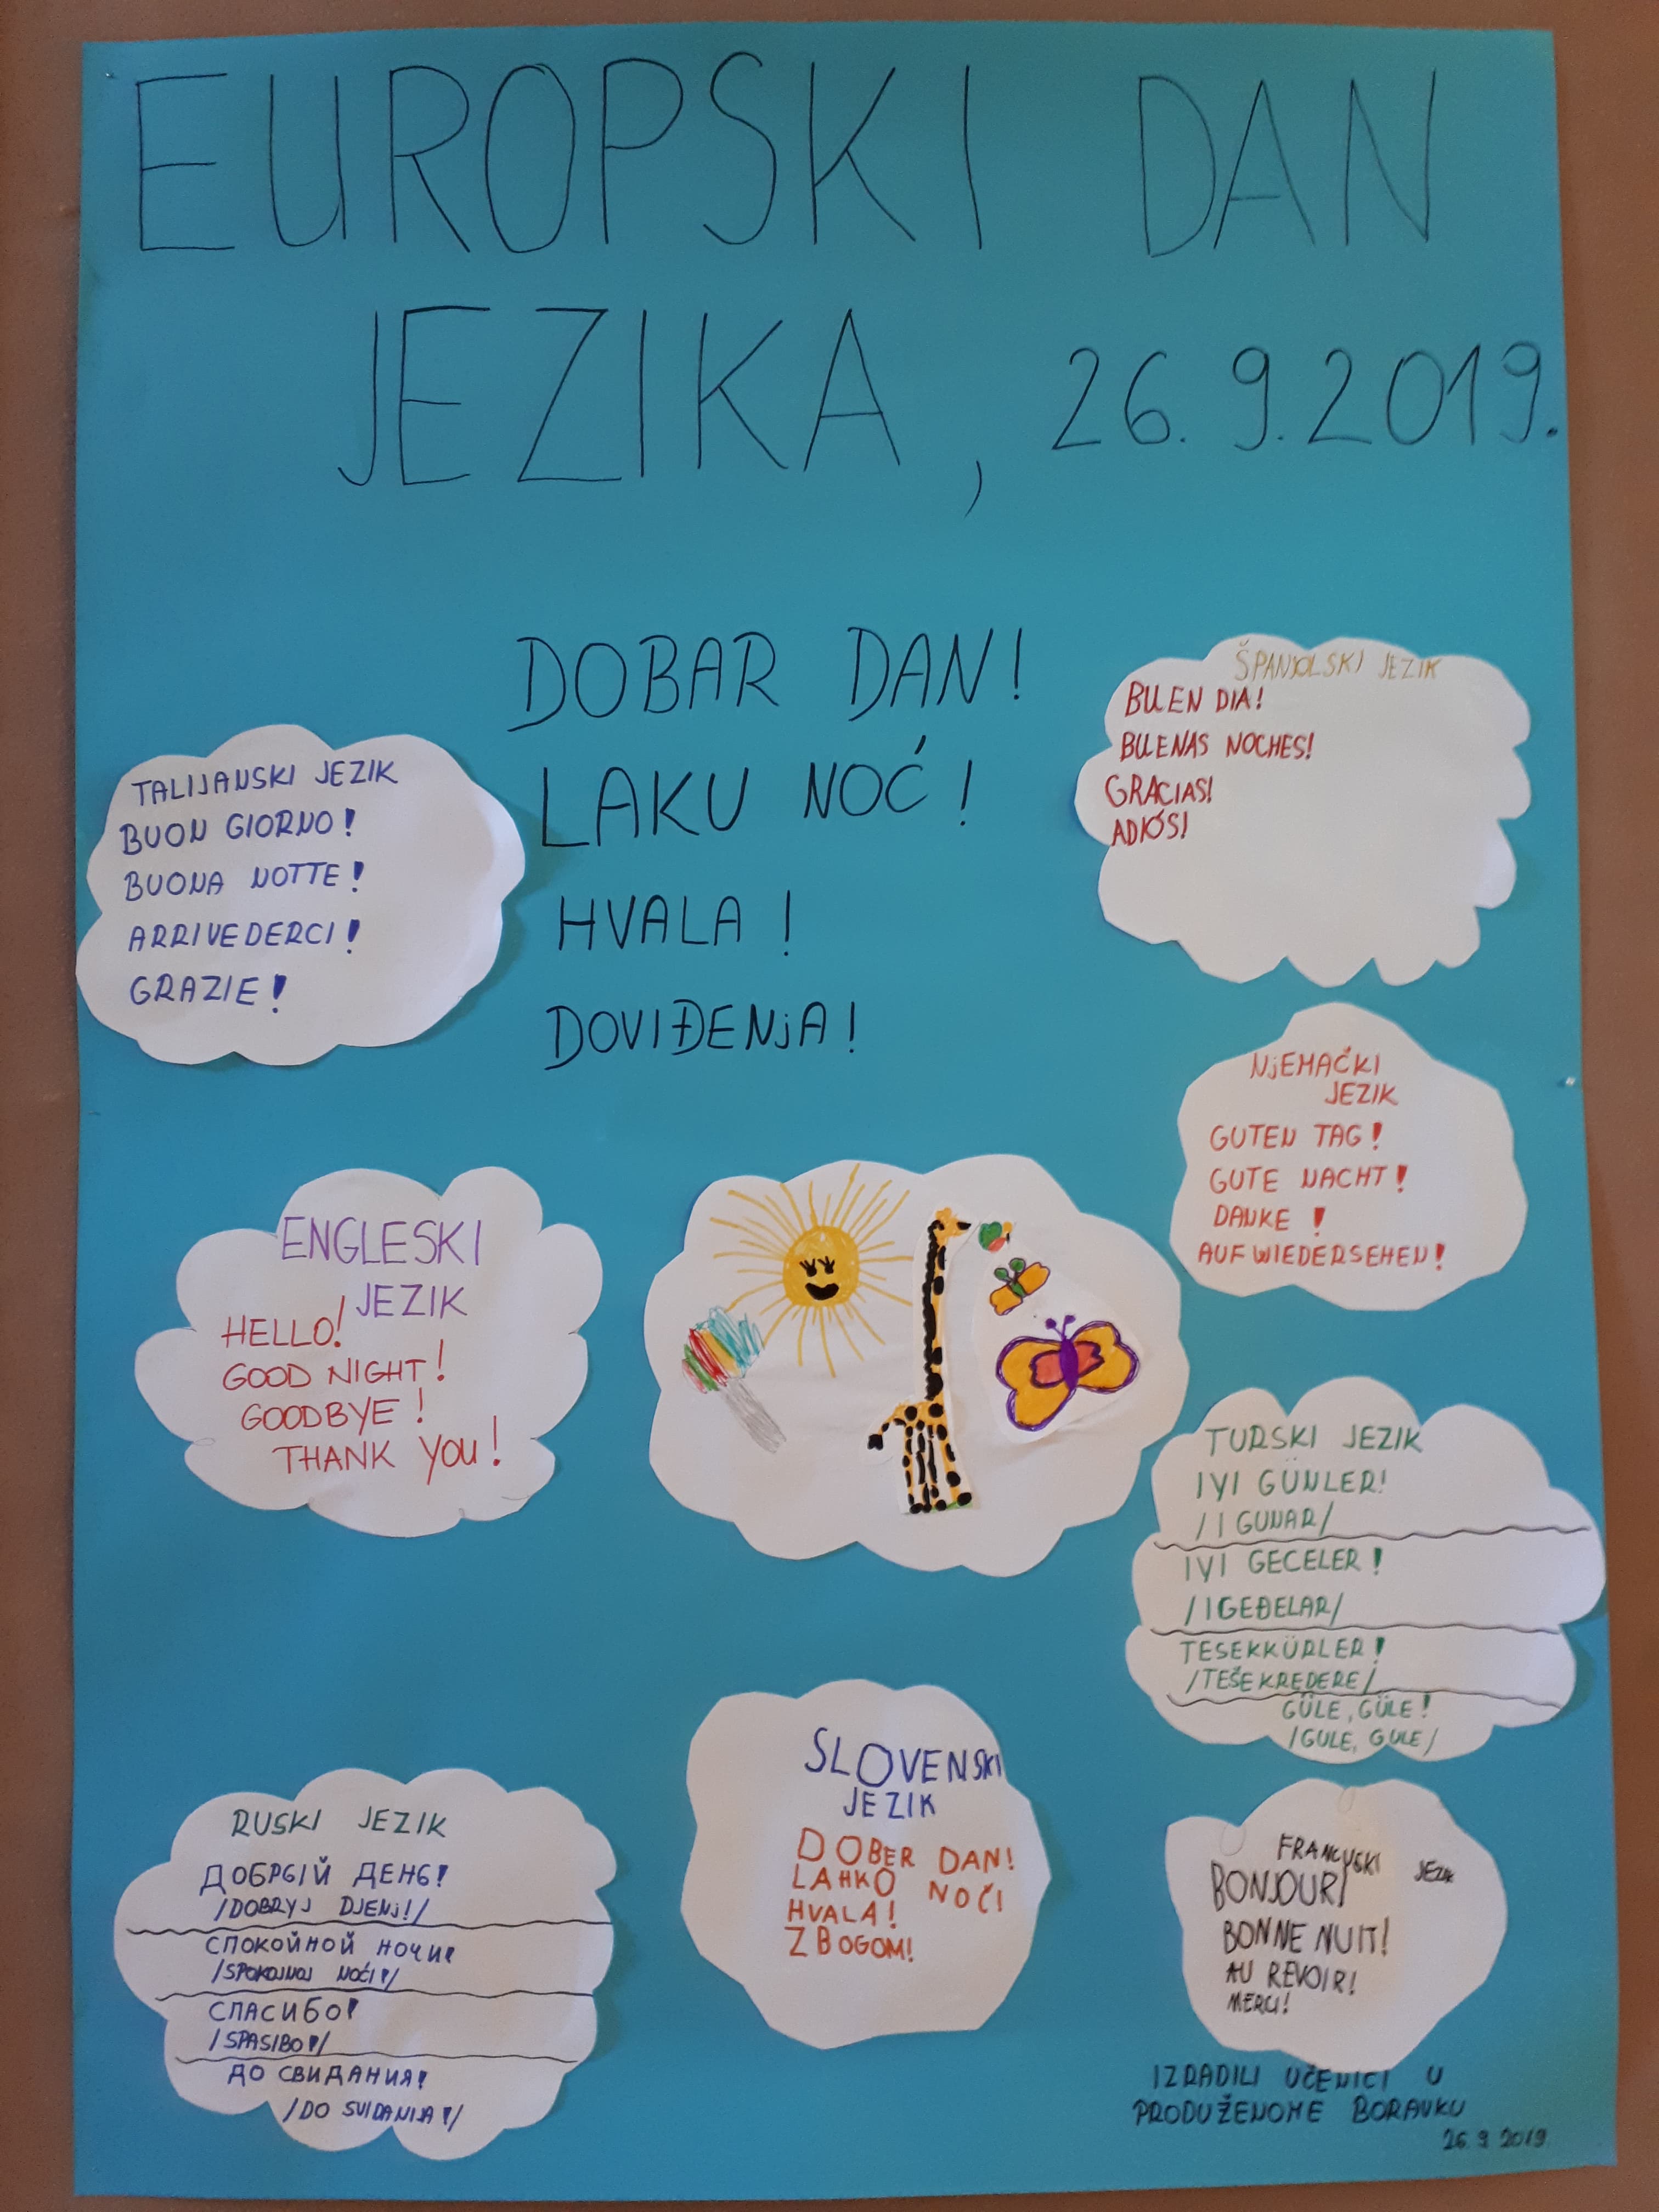 EUROPSKI DAN
JEZIKA, 26.9.2019.
DOBAR DAN!
LAKU NOĆ!
HVALA!
DOVIĐENJA!
TALIJANSKI JEZIK
BUON GIORNO!
BUONA NOTTE!
ARRIVEDERCI!
GRAZIE!
ŠPANJOLSKI JEZIK
BUEN DIA!
BUENAS NOCHES!
GRACIAS!
ADIÓS!
NJEMAČKI
JEZIK
GUTEN TAG!
GUTE NACHT!
DANKE!
AUF WIEDERSEHEN!
ENGLESKI
JEZIK
HELLO!
GOOD NIGHT!
GOODBYE!
THANK YOU!
TURSKI JEZIK
IYI GÜNLER!
/I GUNAR/
IYI GECELER!
/IGEĐELAR/
TESEKKÜRLER!
/TEŠEKREDERE/
GÜLE, GÜLE!
/GULE, GULE/
RUSKI JEZIK
ДОБРЫЙ ДЕНЬ!
/DOBRYJ DJENJ!/
СПОКОЙНОЙ НОЧИ!
/SPOKOJNOJ NOĆI!/
СПАСИБО!
/SPASIBO!/
ДО СВИДАНИЯ!
/DO SVIDANIJA!/
SLOVENSKI
JEZIK
DOBER DAN!
LAHKO NOČI
HVALA!
ZBOGOM!
FRANCUSKI JEZIK
BONJOUR!
BONNE NUIT!
AU REVOIR!
MERCI!
IZRADILI UČENICI U
PRODUŽENOME BORAVKU
26.9.2019.